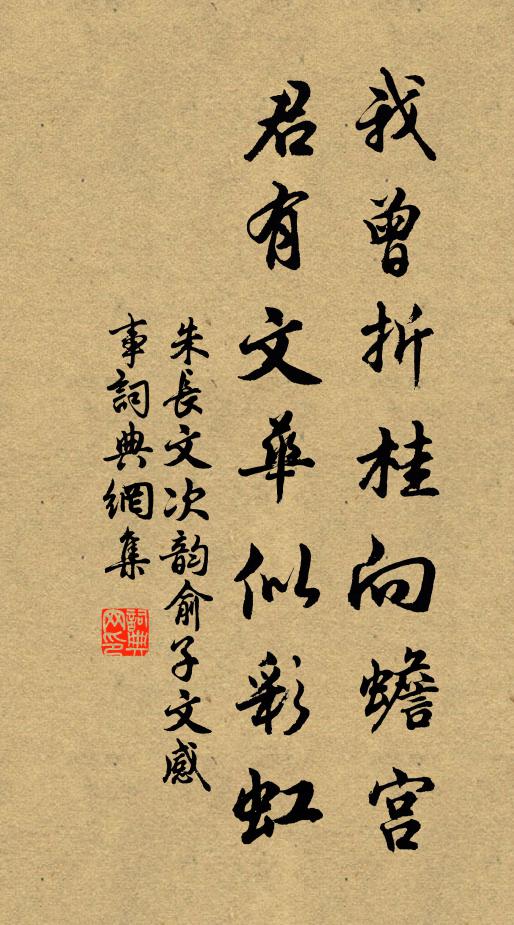 我曾折桂向蟾宮
君有文華似彩虹
朱長文次韵俞子文感
事詞典網集
詞典
网印